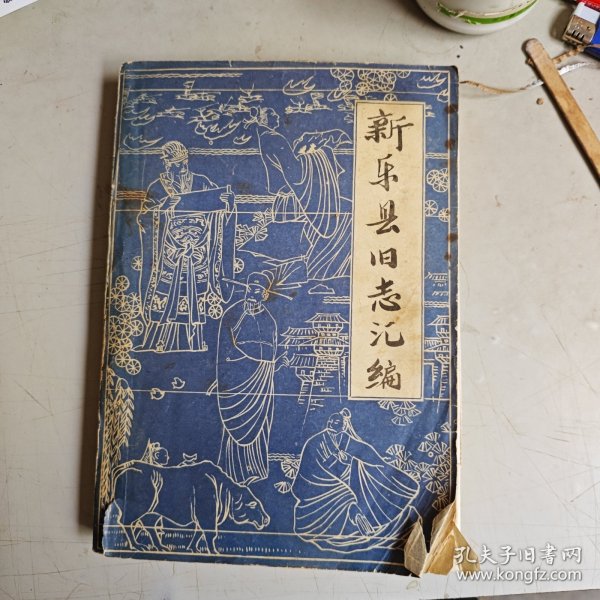 新乐县旧志汇编
孔夫子旧书网
www.kongfz.com